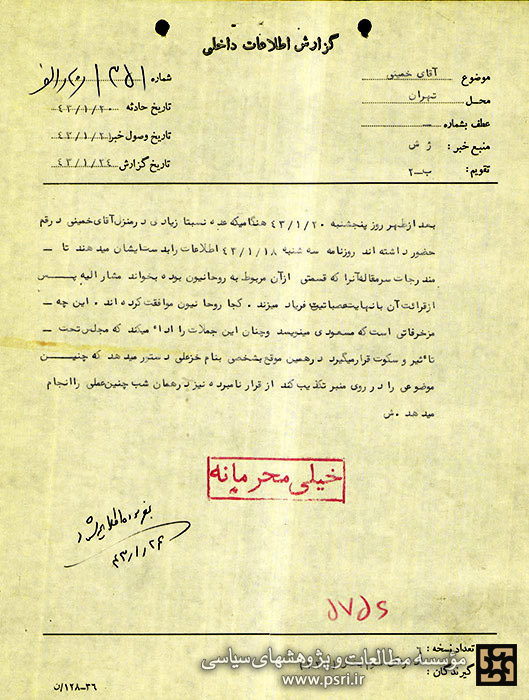 گزارش اطلاعات داخلی
موضوع آقای خمینی
محل تهران
عطف بشماره —
منبع خبر : ژ ش
تقویم : ب-۲
شماره ۳۵۱ / الف
تاریخ حادثه ۴۳/۱/۲۰
تاریخ وصول خبر ۴۳/۱/۲۱
تاریخ گزارش ۴۳/۱/۲۴
بعد از ظهر روز پنجشنبه ۴۳/۱/۲۰ هنگامیکه عده نسبتا زیادی در منزل آقای خمینی در قم
حضور داشته اند روزنامه سه شنبه ۴۳/۱/۱۸ اطلاعات را بدست ایشان میدهند تا —
مندرجات سرمقاله آنرا که قسمتی از آن مربوط به روحانیون بوده بخواند مشارالیه پس
از قرائت آن با نهایت عصبانیت فریاد میزند . کجا روحانیون موافقت کرده اند . این چه —
مزخرفاتی است که مسعودی مینویسد وچنان این جملات را اداء میکند که مجلس تحت —
تاءثیر و سکوت قرار میگیرد در همین موقع بشخصی بنام خزعلی دستور میدهد که چنین
موضوعی را در روی منبر تکذیب کند از قرار نامبرده نیز در همان شب چنین عملی را انجام
میدهد . ش
خیلی محرمانه
۴۳/۱/۲۶
تعداد نسخه : ۶
گیرندگان :
مؤسسه مطالعات و پژوهشهای سیاسی
www.psri.ir
۳۶-۱۲۸/ن